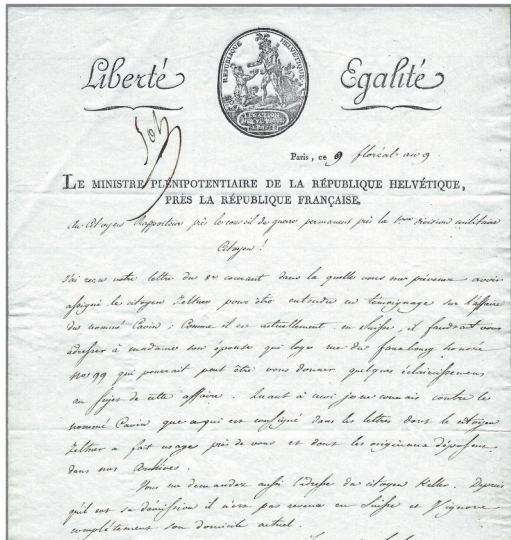 Liberté Egalité
REPUBLIQUE HELVETIQUE
LEGATION
Paris, ce 9 floréal an 9.
LE MINISTRE PLÉNIPOTENTIAIRE DE LA RÉPUBLIQUE HELVÉTIQUE,
PRÈS LA RÉPUBLIQUE FRANÇAISE,
Au Citoyen Rapporteur près le conseil de guerre permanent près la division militaire
Citoyen !
J'ai reçu votre lettre du 8e courant dans la quelle vous me prévenez avoir
assigné le citoyen Zeltner pour être entendu en témoignage sur l'affaire
du nommé Cavin ; Comme il est actuellement en Suisse, il faudrait vous
adresser à madame son épouse qui loge rue du faubourg honoré
No. 99 qui pourrait peut être vous donner quelques éclaircissemens
au sujet de cette affaire. Quant à moi je ne connais contre le
nommé Cavin que ce qui est consigné dans les lettres dont le citoyen
Zeltner a fait usage près de vous et dont les originaux déposent
dans nos Archives.
Vous me demandez aussi l'adresse du citoyen Keller. Depuis
qu'il eut sa démission il n'est pas revenu en Suisse et j'ignore
complètement son domicile actuel.